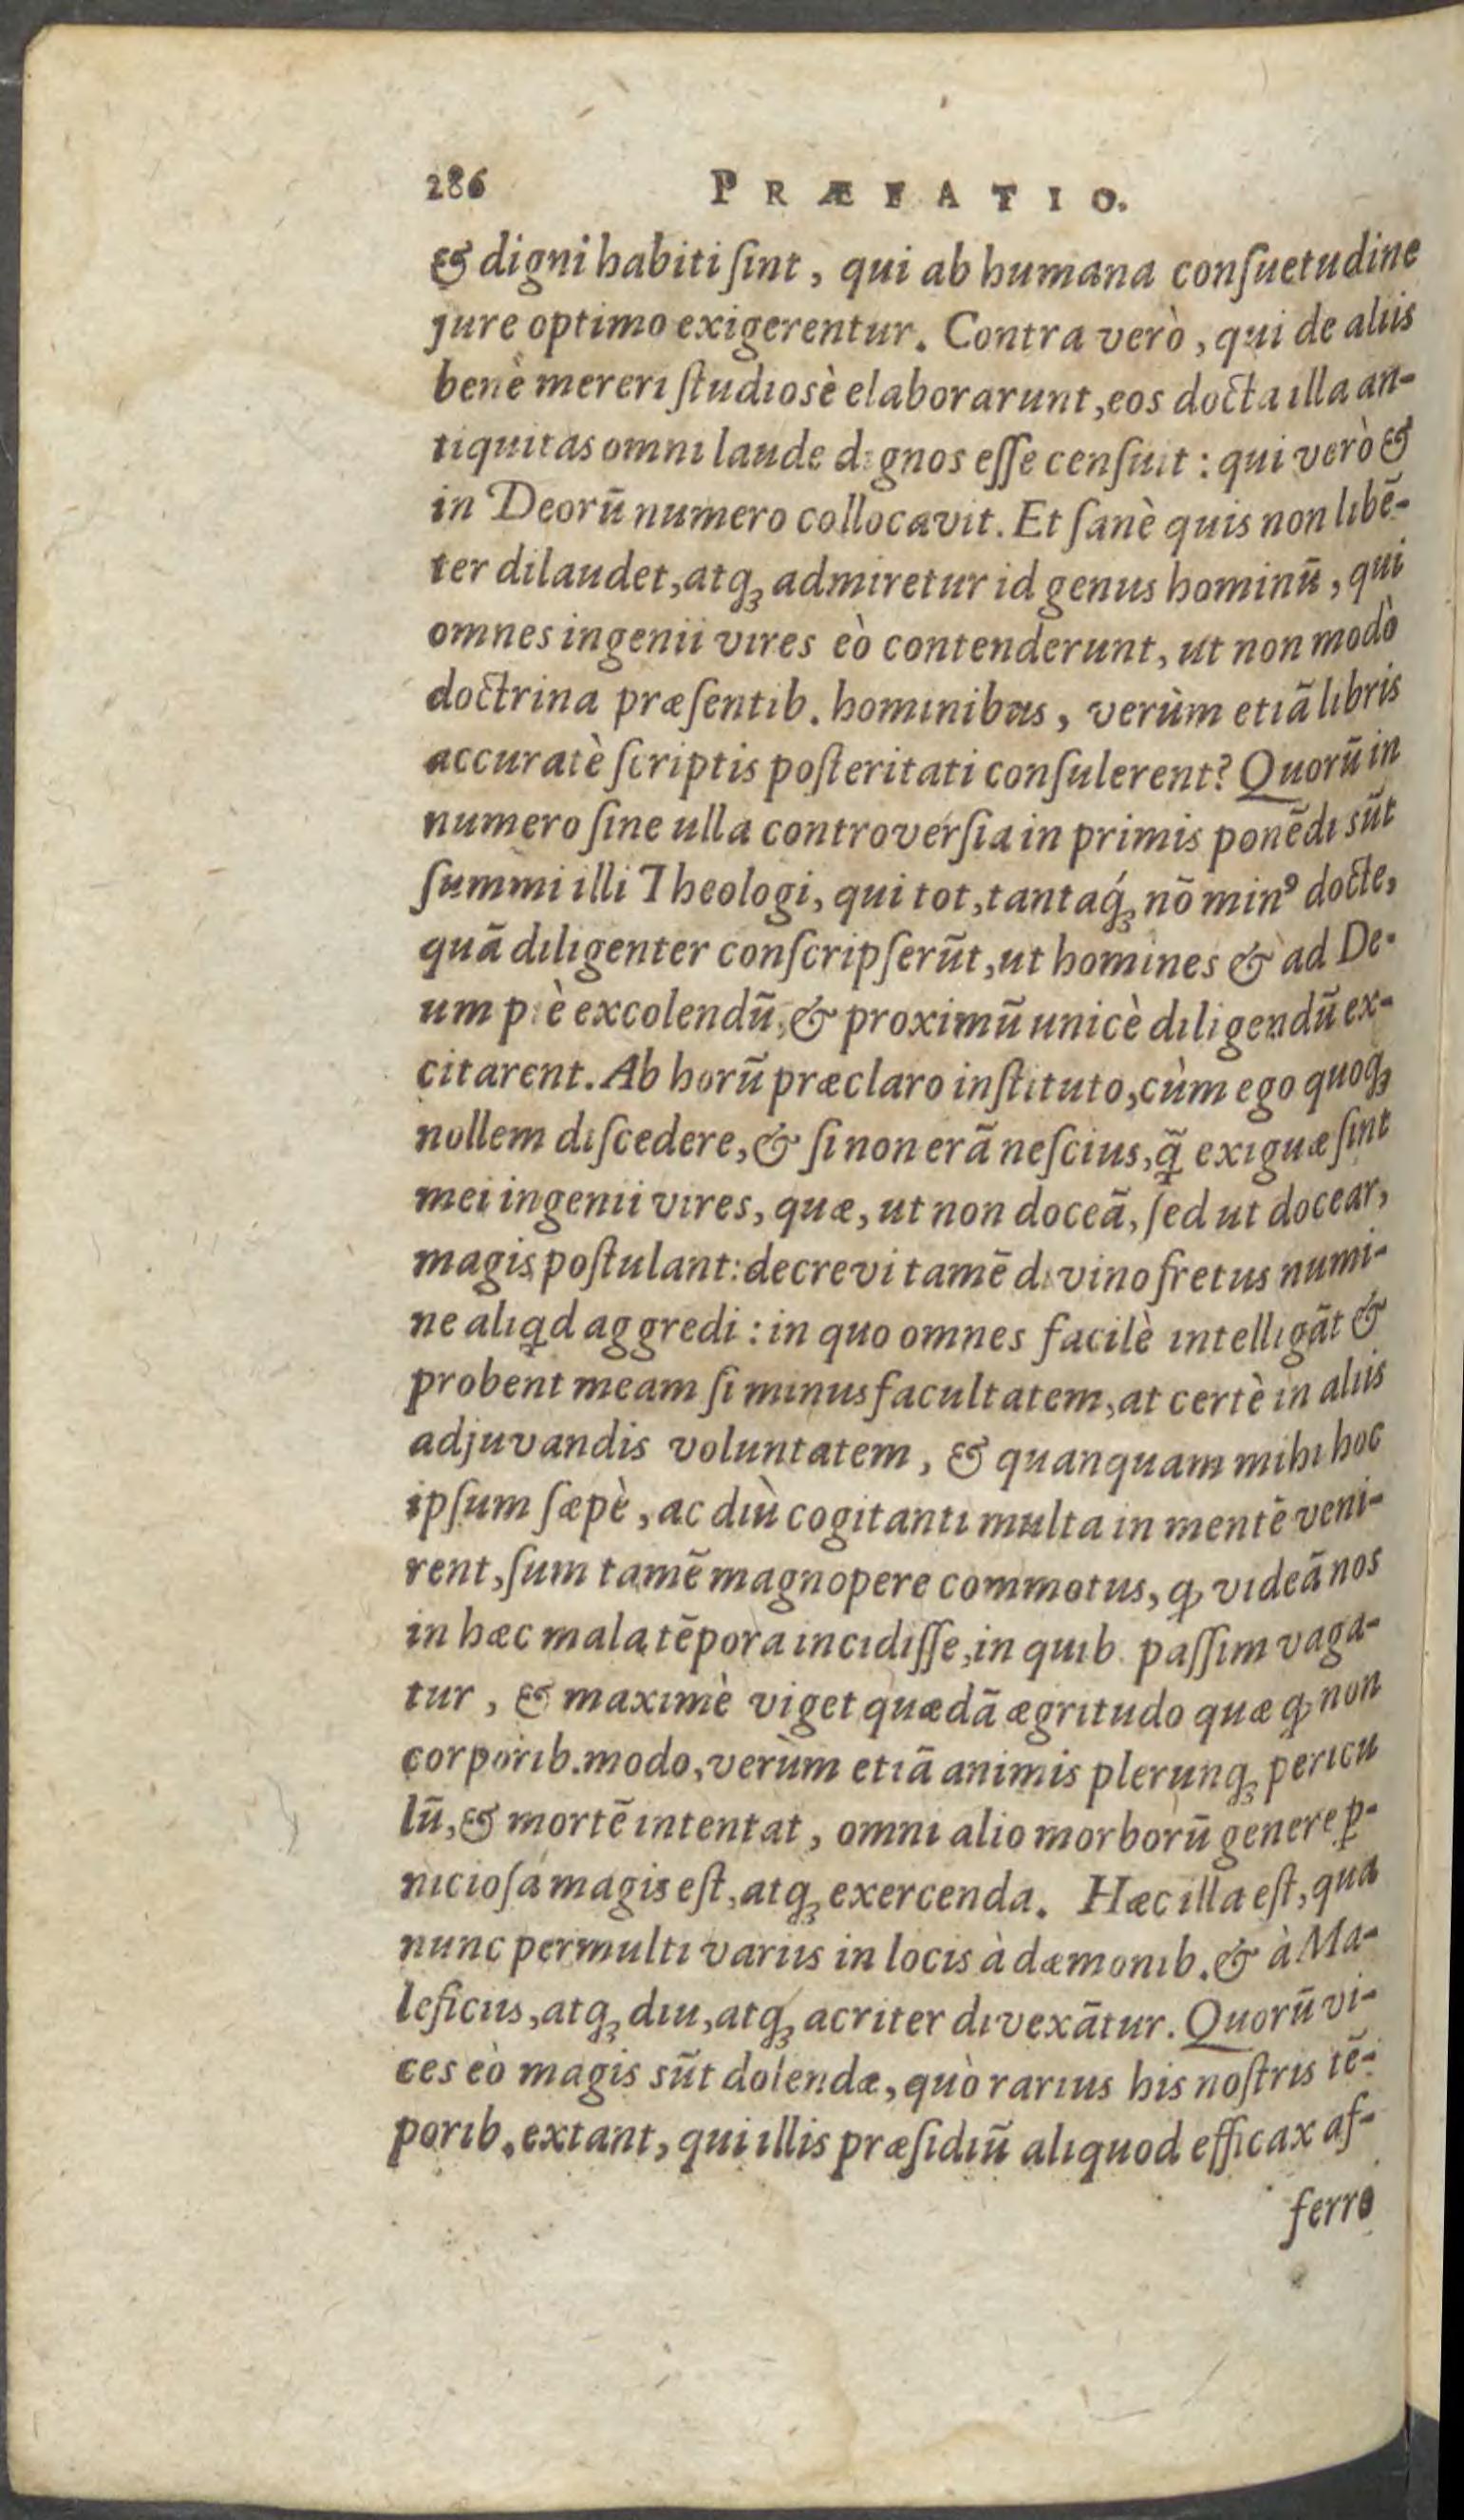 286 PRÆFATIO.
& digni habiti ſint, qui ab humana conſuetudine
jure optimo exigerentur. Contra verò, qui de aliis
benè mereri ſtudiosè elaborarunt, eos docta illa an-
tiquitas omni laude dignos eſſe cenſuit: qui verò &
in Deorũ numero collocavit. Et ſanè quis non libẽ-
ter dilaudet, atq; admiretur id genus hominũ, qui
omnes ingenii vires eò contenderunt, ut non modò
doctrina præſentib. hominibus, verùm etiã libris
accuratè ſcriptis poſteritati conſulerent? Quorũ in
numero ſine ulla controverſia in primis ponẽdi sũt
ſummi illi Theologi, qui tot, tantaq́; nõ minꝰ docte,
quã diligenter conſcripſerũt, ut homines & ad De-
um piè excolendũ, & proximũ unicè diligendũ ex-
citarent. Ab horũ præclaro inſtituto, cùm ego quoq;
nollem diſcedere, & ſi non erã neſcius, q̃ exiguæ ſint
mei ingenii vires, quæ, ut non doceã, ſed ut docear,
magis poſtulant: decrevi tamẽ divino fretus numi-
ne aliqd aggredi: in quo omnes facilè intelligãt &
probent meam ſi minus facultatem, at certè in aliis
adjuvandis voluntatem, & quanquam mihi hoc
ipſum ſæpè, ac diù cogitanti multa in mentẽ veni-
rent, ſum tamẽ magnopere commotus, ꝙ videã nos
in hæc mala tẽpora incidiſſe, in quib. paſſim vaga-
tur, & maximè viget quædã ægritudo quæ ꝙ non
corporib. modo, verùm etiã animis plerunq; pericu
lũ, & mortẽ intentat, omni alio morborũ genere ꝑ-
nicioſa magis eſt, atq; exercenda. Hæc illa eſt, qua
nunc permulti variis in locis à dæmonib. & à Ma-
leficiis, atq; diu, atq; acriter divexãtur. Quorũ vi-
ces eò magis sũt dolendæ, quò rarius his noſtris tẽ-
porib. extant, qui illis præſidiũ aliquod efficax af-
ferre